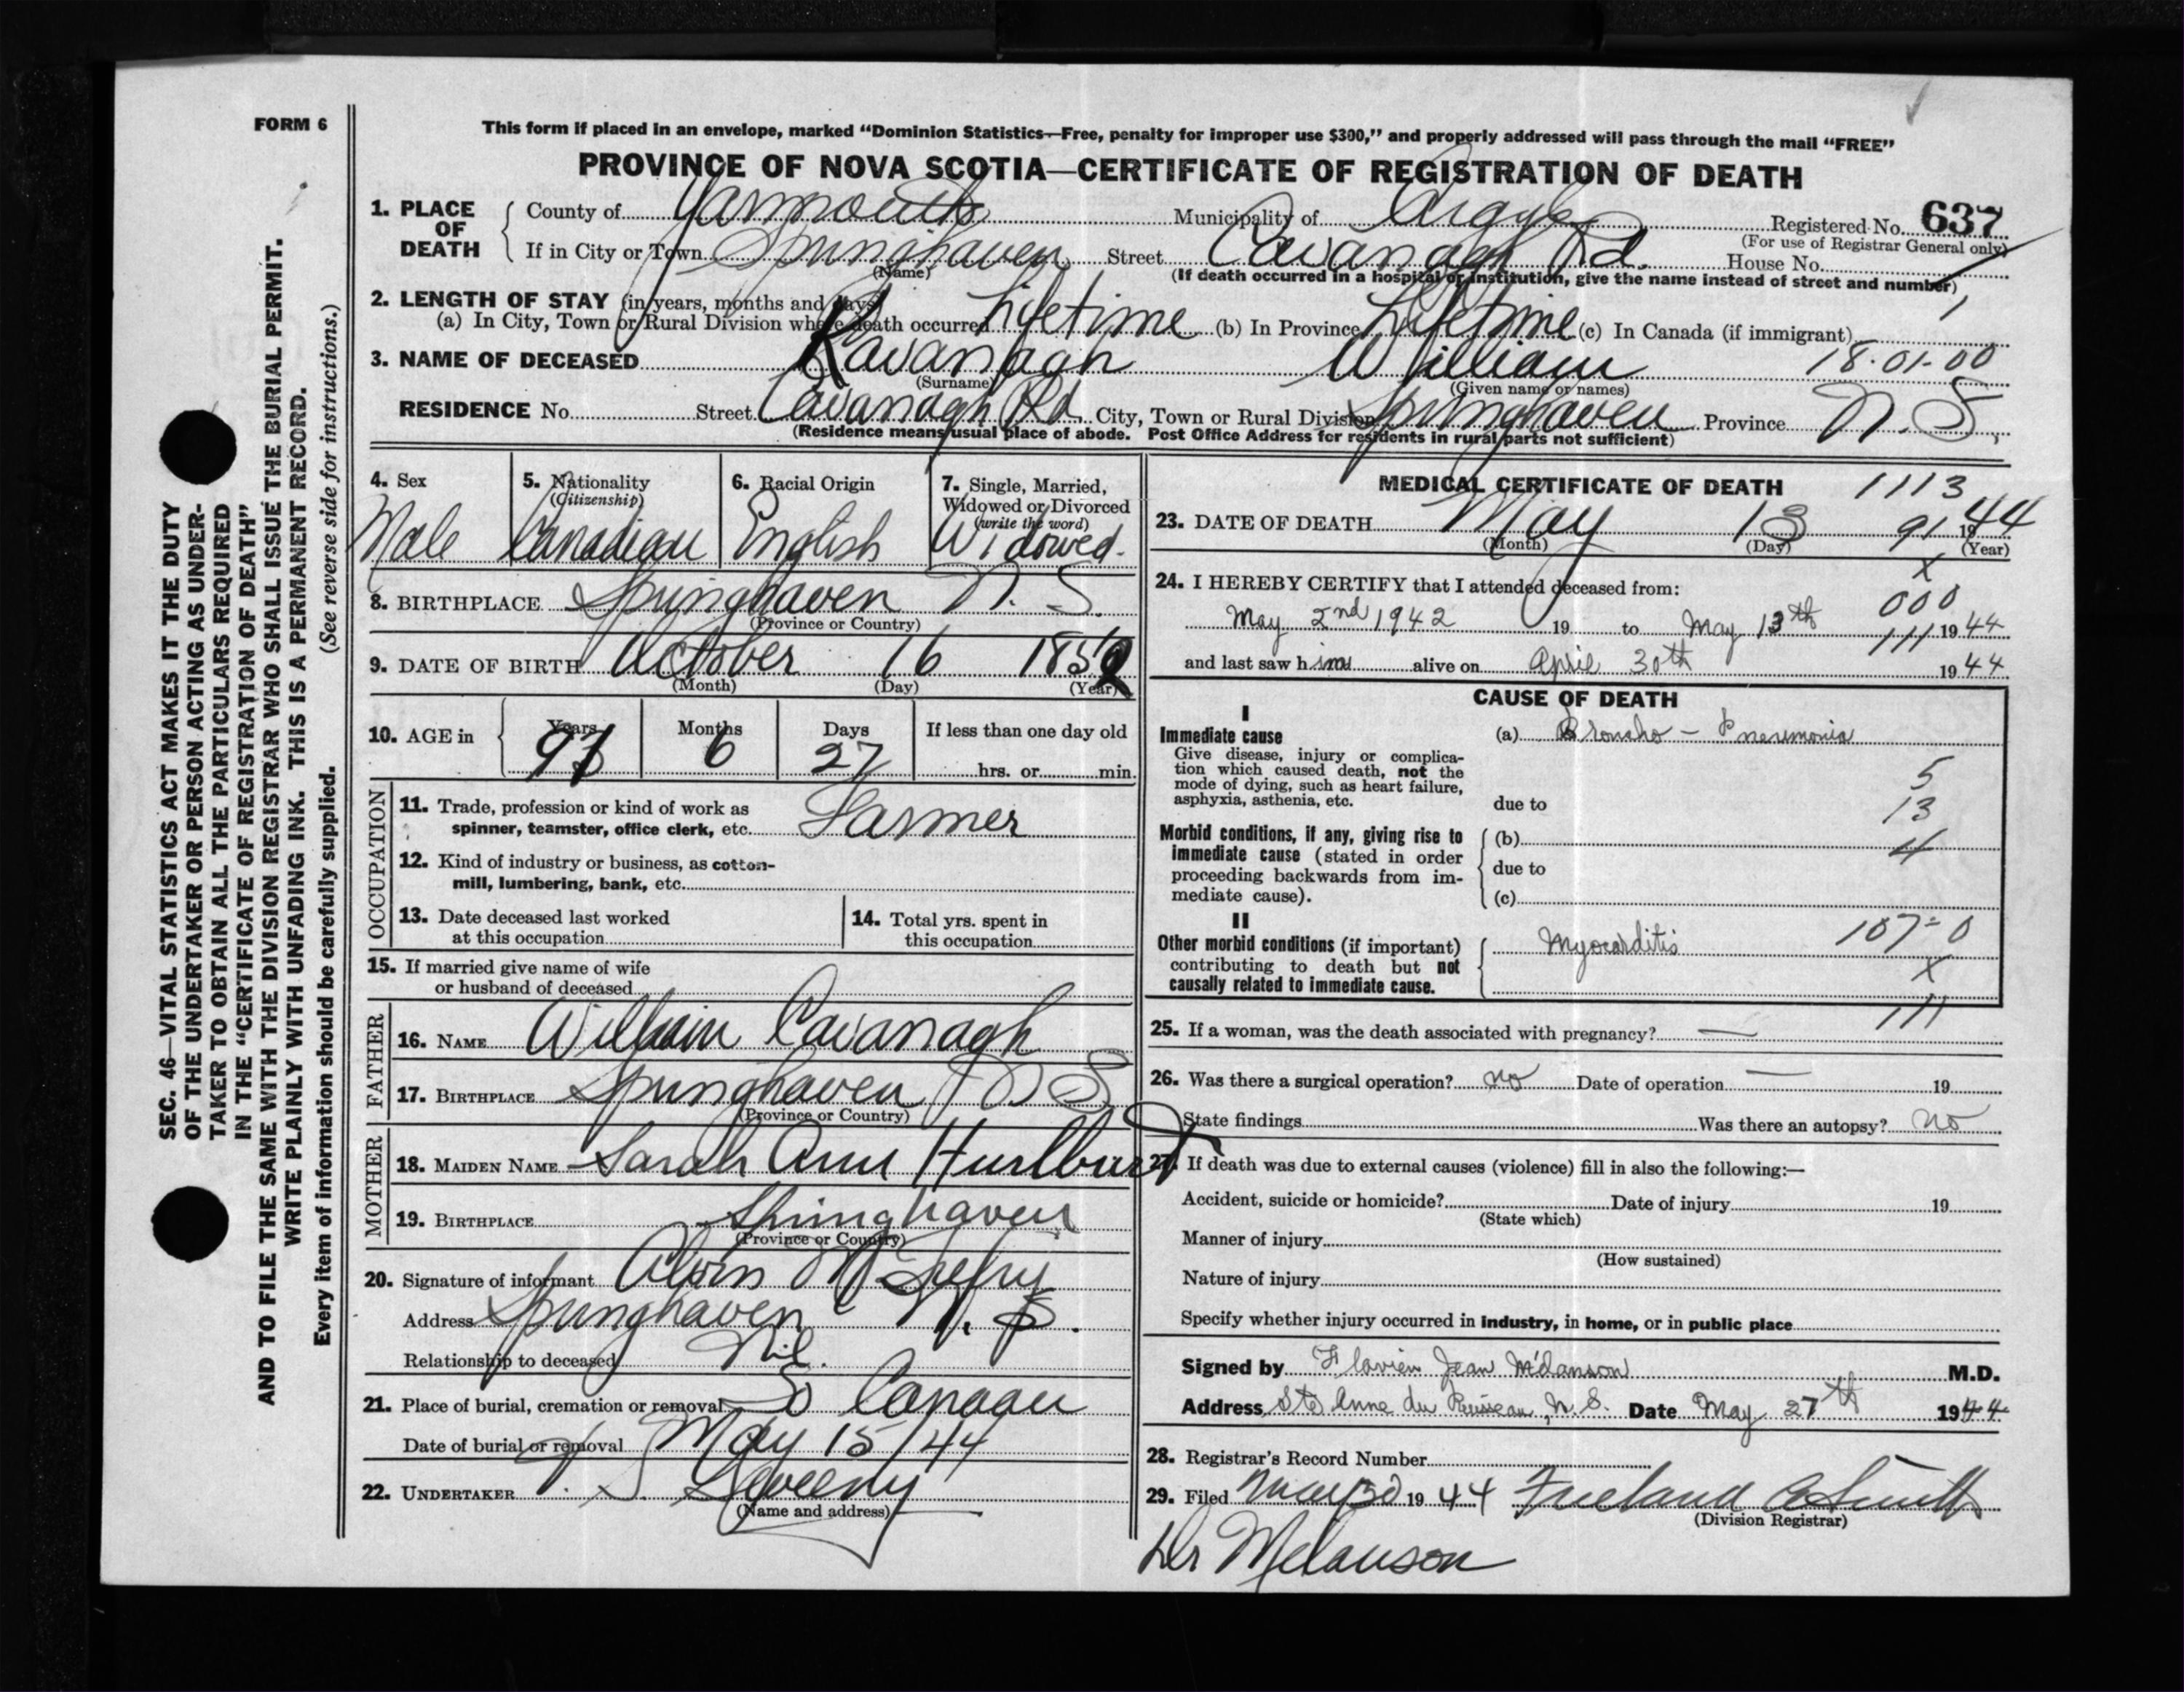 FORM 6
This form if placed in an envelope, marked “Dominion Statistics—Free, penalty for improper use $300,” and properly addressed will pass through the mail “FREE”
PROVINCE OF NOVA SCOTIA—CERTIFICATE OF REGISTRATION OF DEATH
1. PLACE OF DEATH
County of Yarmouth Municipality of Argyle Registered No. 637
(For use of Registrar General only)
If in City or Town Springhaven Street Cavanagh Rd. House No.
(Name) (If death occurred in a hospital or institution, give the name instead of street and number)
2. LENGTH OF STAY (in years, months and days)
(a) In City, Town or Rural Division where death occurred Lifetime (b) In Province Lifetime (c) In Canada (if immigrant)
3. NAME OF DECEASED Kavanagh William 18-01-00
(Surname) (Given name or names)
RESIDENCE No. Street Cavanagh Rd. City, Town or Rural Division Springhaven Province N. S.
(Residence means usual place of abode. Post Office Address for residents in rural parts not sufficient)
4. Sex Male
5. Nationality (Citizenship) Canadian
6. Racial Origin English
7. Single, Married, Widowed or Divorced (write the word) Widowed.
8. BIRTHPLACE Springhaven N. S.
(Province or Country)
9. DATE OF BIRTH October 16 185
(Month) (Day) (Year)
10. AGE in Years Months 6 Days 27 If less than one day old
hrs. or min.
OCCUPATION
11. Trade, profession or kind of work as spinner, teamster, office clerk, etc. Farmer
12. Kind of industry or business, as cotton-mill, lumbering, bank, etc.
13. Date deceased last worked at this occupation
14. Total yrs. spent in this occupation
15. If married give name of wife or husband of deceased
FATHER
16. NAME William Cavanagh
17. BIRTHPLACE Springhaven N S
(Province or Country)
MOTHER
18. MAIDEN NAME Sarah Ann Hurlburt
19. BIRTHPLACE Springhaven
(Province or Country)
20. Signature of informant
Address Springhaven N. S.
Relationship to deceased Nil.
21. Place of burial, cremation or removal So Canaan
Date of burial or removal May 15/44
22. UNDERTAKER V. S. Sweeny
(Name and address)
MEDICAL CERTIFICATE OF DEATH 1113
23. DATE OF DEATH May 13 91 1944
(Month) (Day) (Year)
x
24. I HEREBY CERTIFY that I attended deceased from:
000
May 2nd 1942 19 to May 13th 1944
111
and last saw him alive on April 30th 1944
CAUSE OF DEATH
I
Immediate cause
Give disease, injury or complication which caused death, not the mode of dying, such as heart failure, asphyxia, asthenia, etc.
(a) Broncho - Pneumonia
5
due to 13
Morbid conditions, if any, giving rise to immediate cause (stated in order proceeding backwards from immediate cause).
(b) 4
due to
(c)
II
Other morbid conditions (if important) contributing to death but not causally related to immediate cause.
Myocarditis 107-0
x
111
25. If a woman, was the death associated with pregnancy? —
26. Was there a surgical operation? no Date of operation — 19
State findings Was there an autopsy? no
27. If death was due to external causes (violence) fill in also the following:—
Accident, suicide or homicide? Date of injury 19
(State which)
Manner of injury
(How sustained)
Nature of injury
Specify whether injury occurred in industry, in home, or in public place
Signed by Flavien Jean Mélanson M.D.
Address Ste Anne du Ruisseau, N. S. Date May 27th 1944
28. Registrar's Record Number
29. Filed May 30 1944 Freeland A Smith
(Division Registrar)
Dr Melanson
SEC. 46—VITAL STATISTICS ACT MAKES IT THE DUTY
OF THE UNDERTAKER OR PERSON ACTING AS UNDER-
TAKER TO OBTAIN ALL THE PARTICULARS REQUIRED
IN THE “CERTIFICATE OF REGISTRATION OF DEATH”
AND TO FILE THE SAME WITH THE DIVISION REGISTRAR WHO SHALL ISSUE THE BURIAL PERMIT.
WRITE PLAINLY WITH UNFADING INK. THIS IS A PERMANENT RECORD.
Every item of information should be carefully supplied. (See reverse side for instructions.)